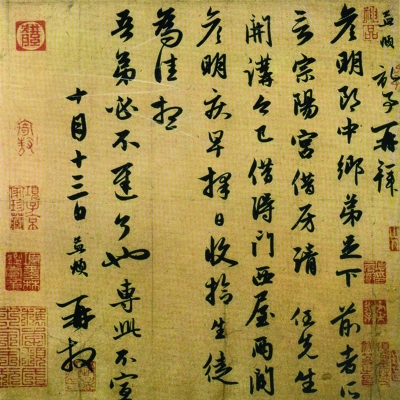 孟頫頓首再拜
彥明郎中鄉弟足下前者所
言宗陽宮借房請任先生
開講今已借得門西屋兩間
彥明疾早擇日收拾生徒
為佳想
吾弟必不遲了也專此不宣
十月十三日孟頫再拜
項子京家珍藏